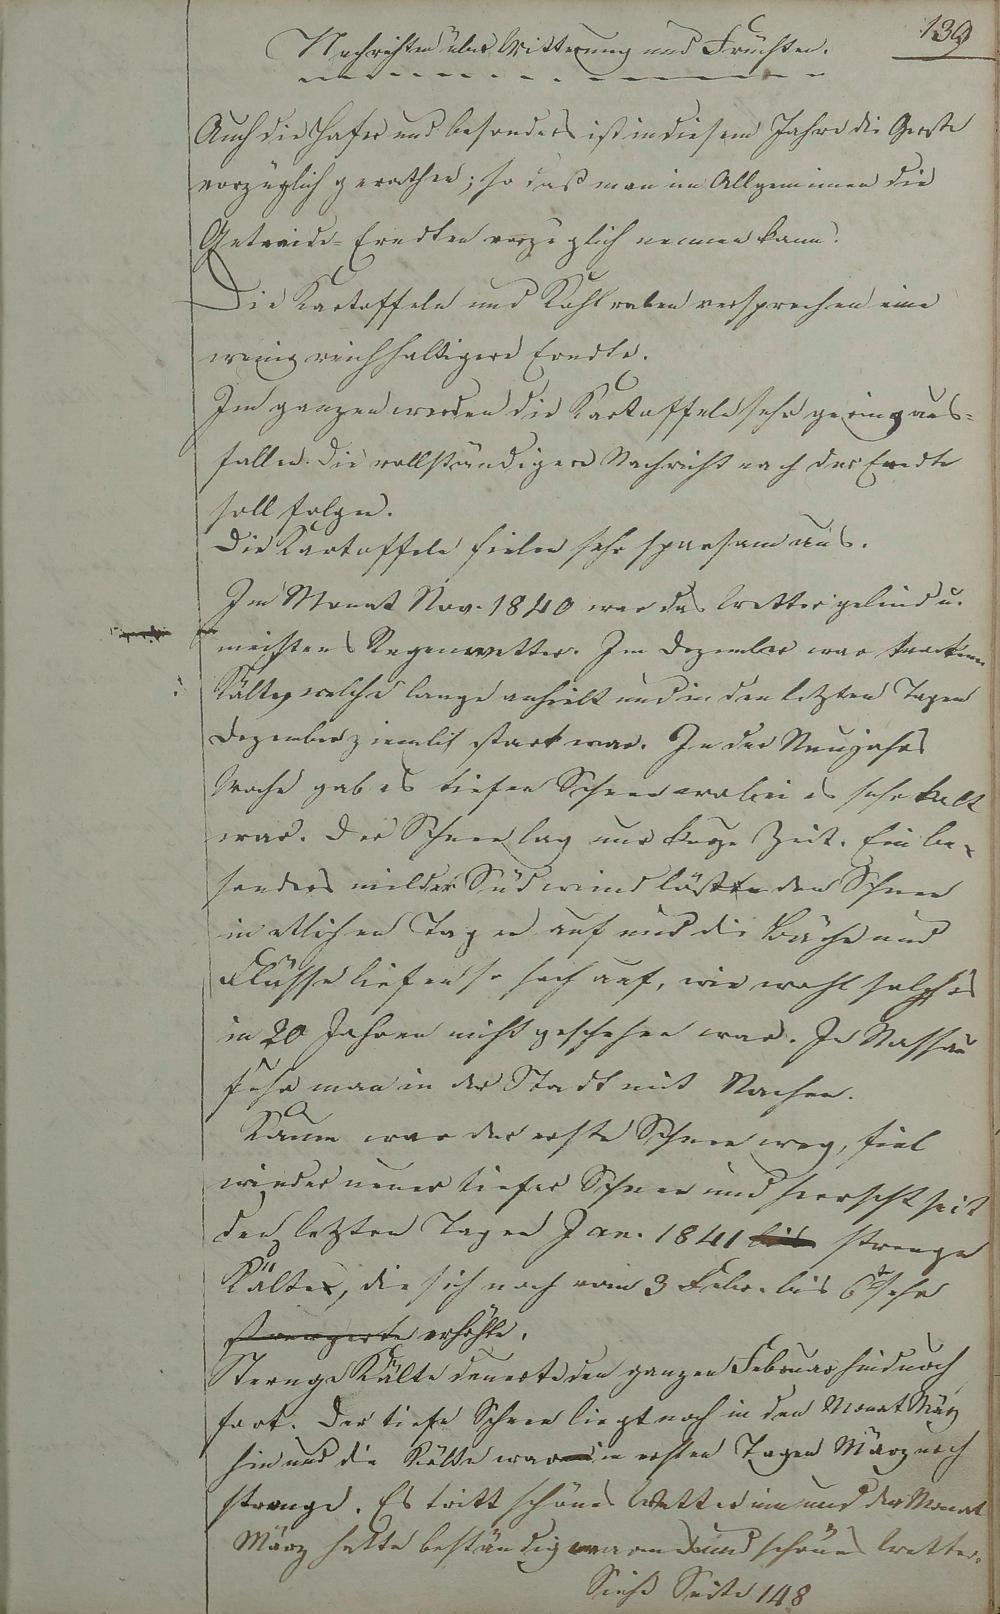 139
Nachrichten über Witterung und Früchten.
Auch die Hafer und besonders ist in diesem Jahre die Gerste
vorzüglich gerathen; so daß man im Allgemeinen die
Getreide-Erndten vorzüglich nennen kann.
Die Kartoffeln und Kohlraben versprechen eine
wenig reichhaltigere Erndte.
Im ganzen werden die Kartoffeln sehr gering aus-
fallen. Die vollständigere Nachricht nach der Erndte
soll folgen.
Die Kartoffeln fielen sehr sparsam aus.
Im Monat Nov. 1840 war das Wetter gelind u.
meistens Regenwetter. Im Dezember war trockene
Kälte, welche lange anhielt und in den letzten Tagen
Dezember ziemlich stark war. In der Neujahrs
Woche gab es tiefen Schnee wobei es sehr kalt
war. Der Schnee lag nur kurze Zeit. Ein be-
sonders milder Südwind löste den Schnee
in etlichen Tagen auf und die Bäche und
Flüsse liefen so hoch auf, wie wohl solches
in 20 Jahren nicht geschehen war. In Nassau
fuhr man in der Stadt mit Nachen.
Kaum war der erste Schnee weg, fiel
wieder neuer tiefer Schnee und herrscht seit
den letzten Tagen Jan. 1841 bis strenge
Kälte, die sich noch vom 3 Febr. bis 6ten sehr
strengerte erhöhte.
Strenge Kälte dauerte den ganzen Februar hindurch
fort. Der tiefe Schnee liegt noch in den Monat März
hin und die Kälte war in ersten Tagen März noch
strenge. Es tritt schönes Wetter ein und der Monat
März hatte beständig warm und schönes Wetter.
Sieh Seite 148